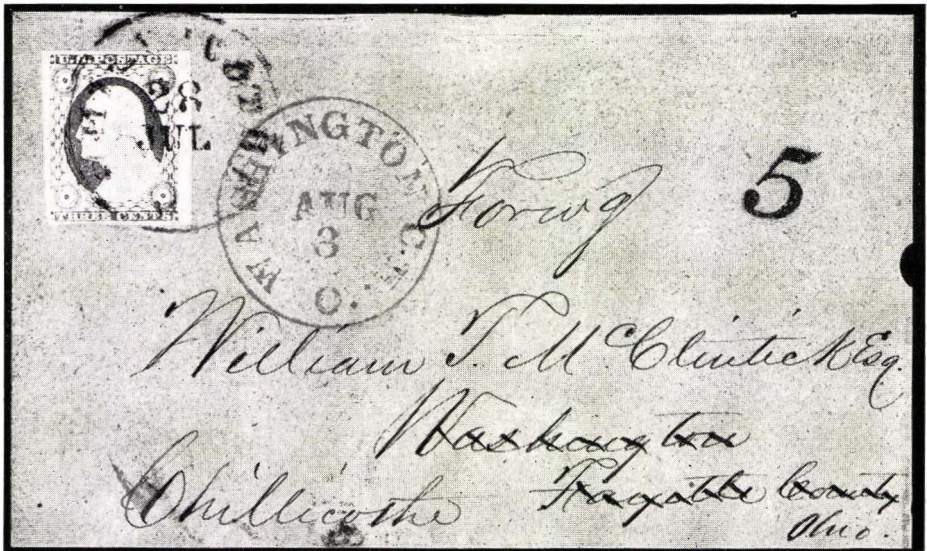 U.S. POSTAGE
THREE CENTS
28
JUL
WASHINGTON C.H.
AUG
3
O.
Forwd
5
William T. McClintick Esq.
Washington
Fayette County
Chillicothe
Ohio.